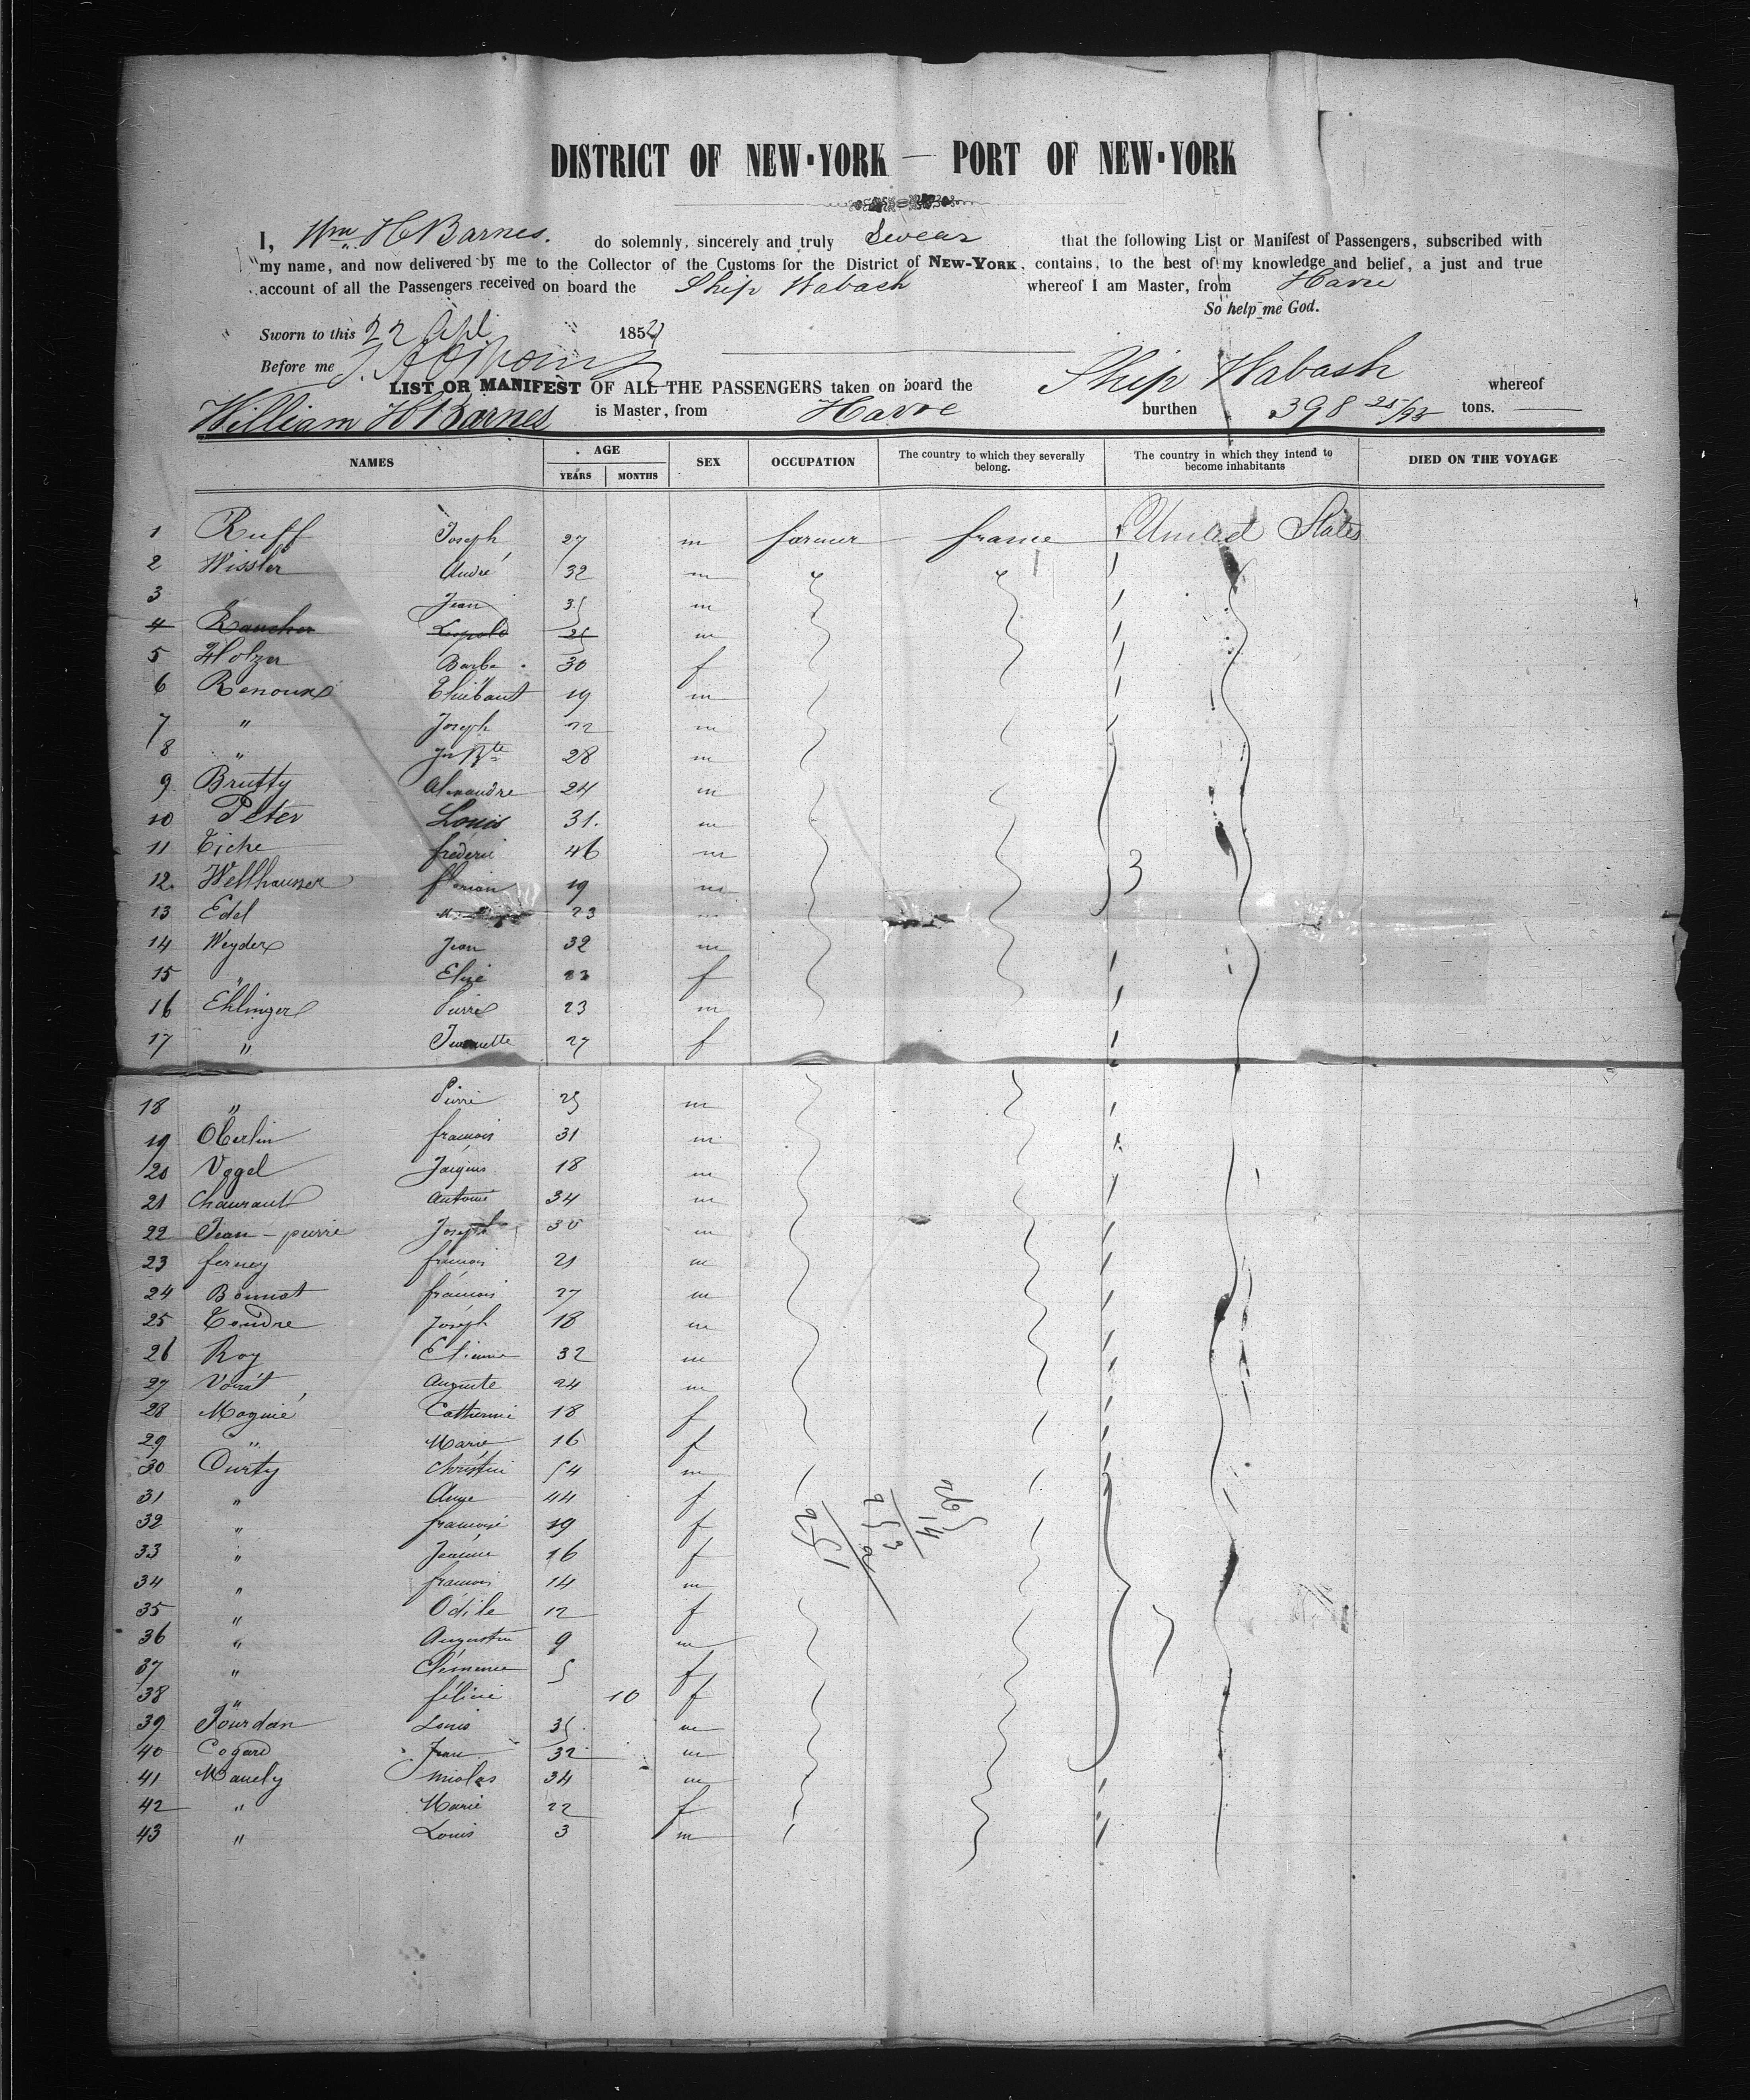 DISTRICT OF NEW-YORK — PORT OF NEW-YORK
I, Wm H Barnes. do solemnly, sincerely and truly Swear that the following List or Manifest of Passengers, subscribed with
my name, and now delivered by me to the Collector of the Customs for the District of NEW-YORK, contains, to the best of my knowledge and belief, a just and true
account of all the Passengers received on board the Ship Wabach whereof I am Master, from Havre
So help me God.
Sworn to this 22 Apl 185
Before me
LIST OR MANIFEST OF ALL THE PASSENGERS taken on board the Ship Wabash whereof
William H Barnes is Master, from Havre burthen 398 25/95 tons.
NAMES AGE SEX OCCUPATION The country to which they severally belong. The country in which they intend to become inhabitants DIED ON THE VOYAGE
YEARS MONTHS
1 Ruff Joseph 27 m farmer france United States
2 Wissler André 32 m
3 Jean 35 m
4 Raucher Leopold 25 m
5 Holzer Barba 30 f
6 Renoux Thiébaut 19 m
7 " Joseph 22 m
8 " Jn Bte 28 m
9 Brutty Alexandre 24 m
10 Peter Louis 31. m
11 Tiche frederic 46 m
12. Wellhauser florian 19 m
13 Edel 23 m
14 Weyder Jean 32 m
15 " Elise 23 f
16 Ehlinger Pierre 23 m
17 " Jeannette 27 f
18 " Pierre 25 m
19 Oberlin francois 31 m
20 Vogel Jacques 18 m
21 Chauraut Antoine 34 m
22 Jean-pierre Joseph 30 m
23 ferney francois 21 m
24 Bonnot francois 27 m
25 Coudre Joseph 18 m
26 Roy Etienne 32 m
27 Voirat Auguste 24 m
28 Magnié Catherine 18 f
29 " Marie 16 f
30 Curty Christin 54 m
31 " Anne 44 f
32 " francoise 19 f
33 " Jeanne 16 f
34 " francois 14 m
35 " Odile 12 f
36 " Augustin 9 m
37 " Clémence 5 f
38 " félicie 10 f
39 Jourdan Louis 35 m
40 Cogard Jean 32 m
41 Mauely nicolas 34 m
42 " Marie 22 f
43 " Louis 3 m
3
265
14
253
2
251
7